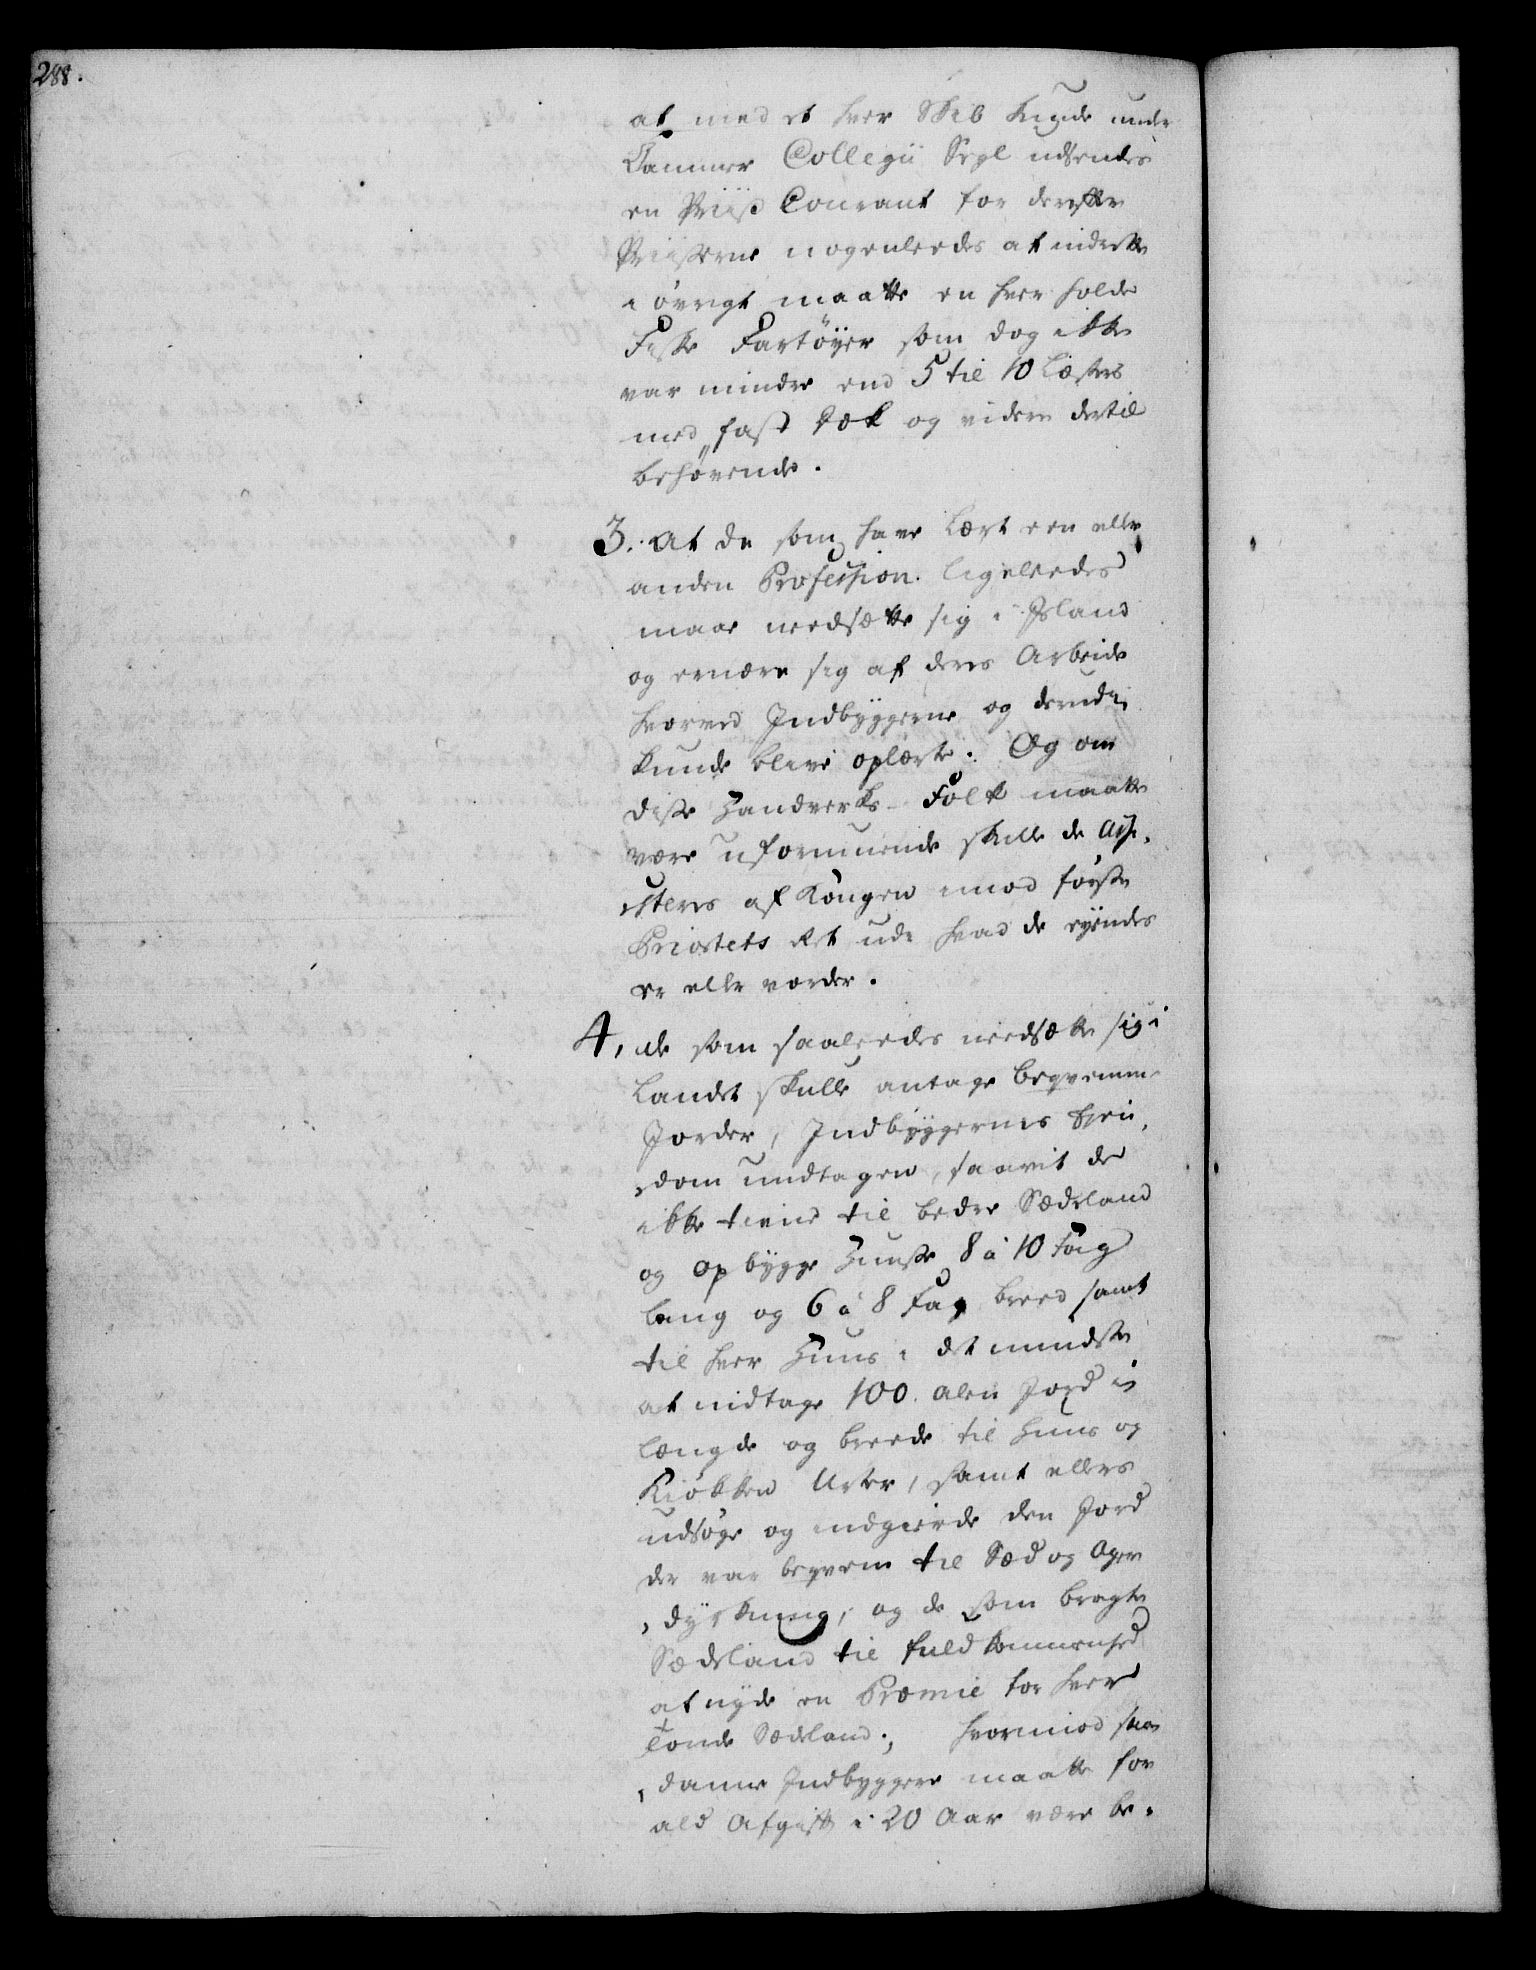 288.
at med et hver Skib kunde under
Cammer Collegii Segl udsendes
en Priis Courant for derefter
Priiserne nogenleedes at indrette
i øvrigt maatte en hver holde
Fiske Fartøyer som dog ikke
var mindre end 5 til 10 Læsters
med fast Dæk og videre dertil
behøvende.
3. At de som have lært een eller
anden Profession ligeleedes
maae nedsætte sig i Island
og ernære sig af deres Arbeide
hvorved Indbyggerne og derudi
kunde blive oplærte. Og om
disse Handverks-Folk maatte
være uformuende skulle de Assi-
steres af Kongen imod første
Prioritets Ret udi hvad de eyendes
er eller vorder.
4, de som saaleedes needsætte sig i
Landet skulle antage beqvemme
Jorder, Indbyggernes Eien-
dom undtagen, saavit de
ikke tiene til bedre Sædeland
og opbygge Huuse 8 á 10 Fag
lang og 6 á 8 Fag breed samt
til hver Huus i det mindste
at indtage 100. Alen Jord i
længde og breede til Huus og
Kiøkken Urter, samt ellers
udsøge og indgierde den Jord
der var beqvem til Sæd og Ager
dyrkning, og de som bragte
Sædeland til fuldkommenhed
at nyde en Præmie for hver
Tønde Sædeland; hvorimod saa-
danne Indbyggere maatte for
ald Afgift i 20 Aar være be-